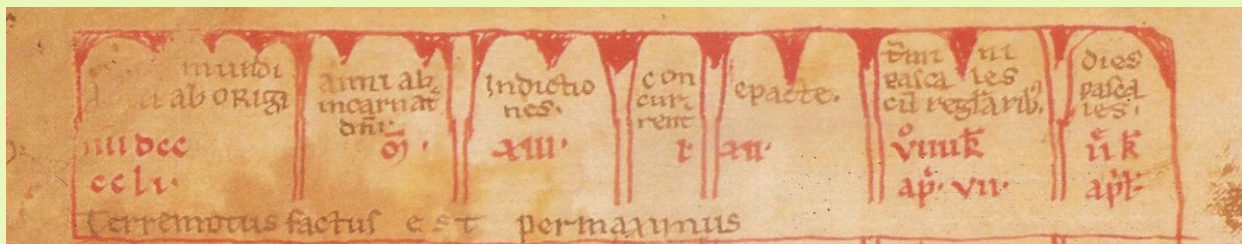 mundi
anni ab ORIGI
anni ab
incarnat
dñi
Indictio
nes.
con
cur
rent
epacte.
t̄mi ni
pasca les
cū regłarib⁹.
dies
pasca
les.
IIII DCC
CC LI.
ꝏ.
XIII.
I.
XII.
VIIII k̄
ap̄. VII.
II k̄
ap̄ł.
Terremotus factus est permaximus